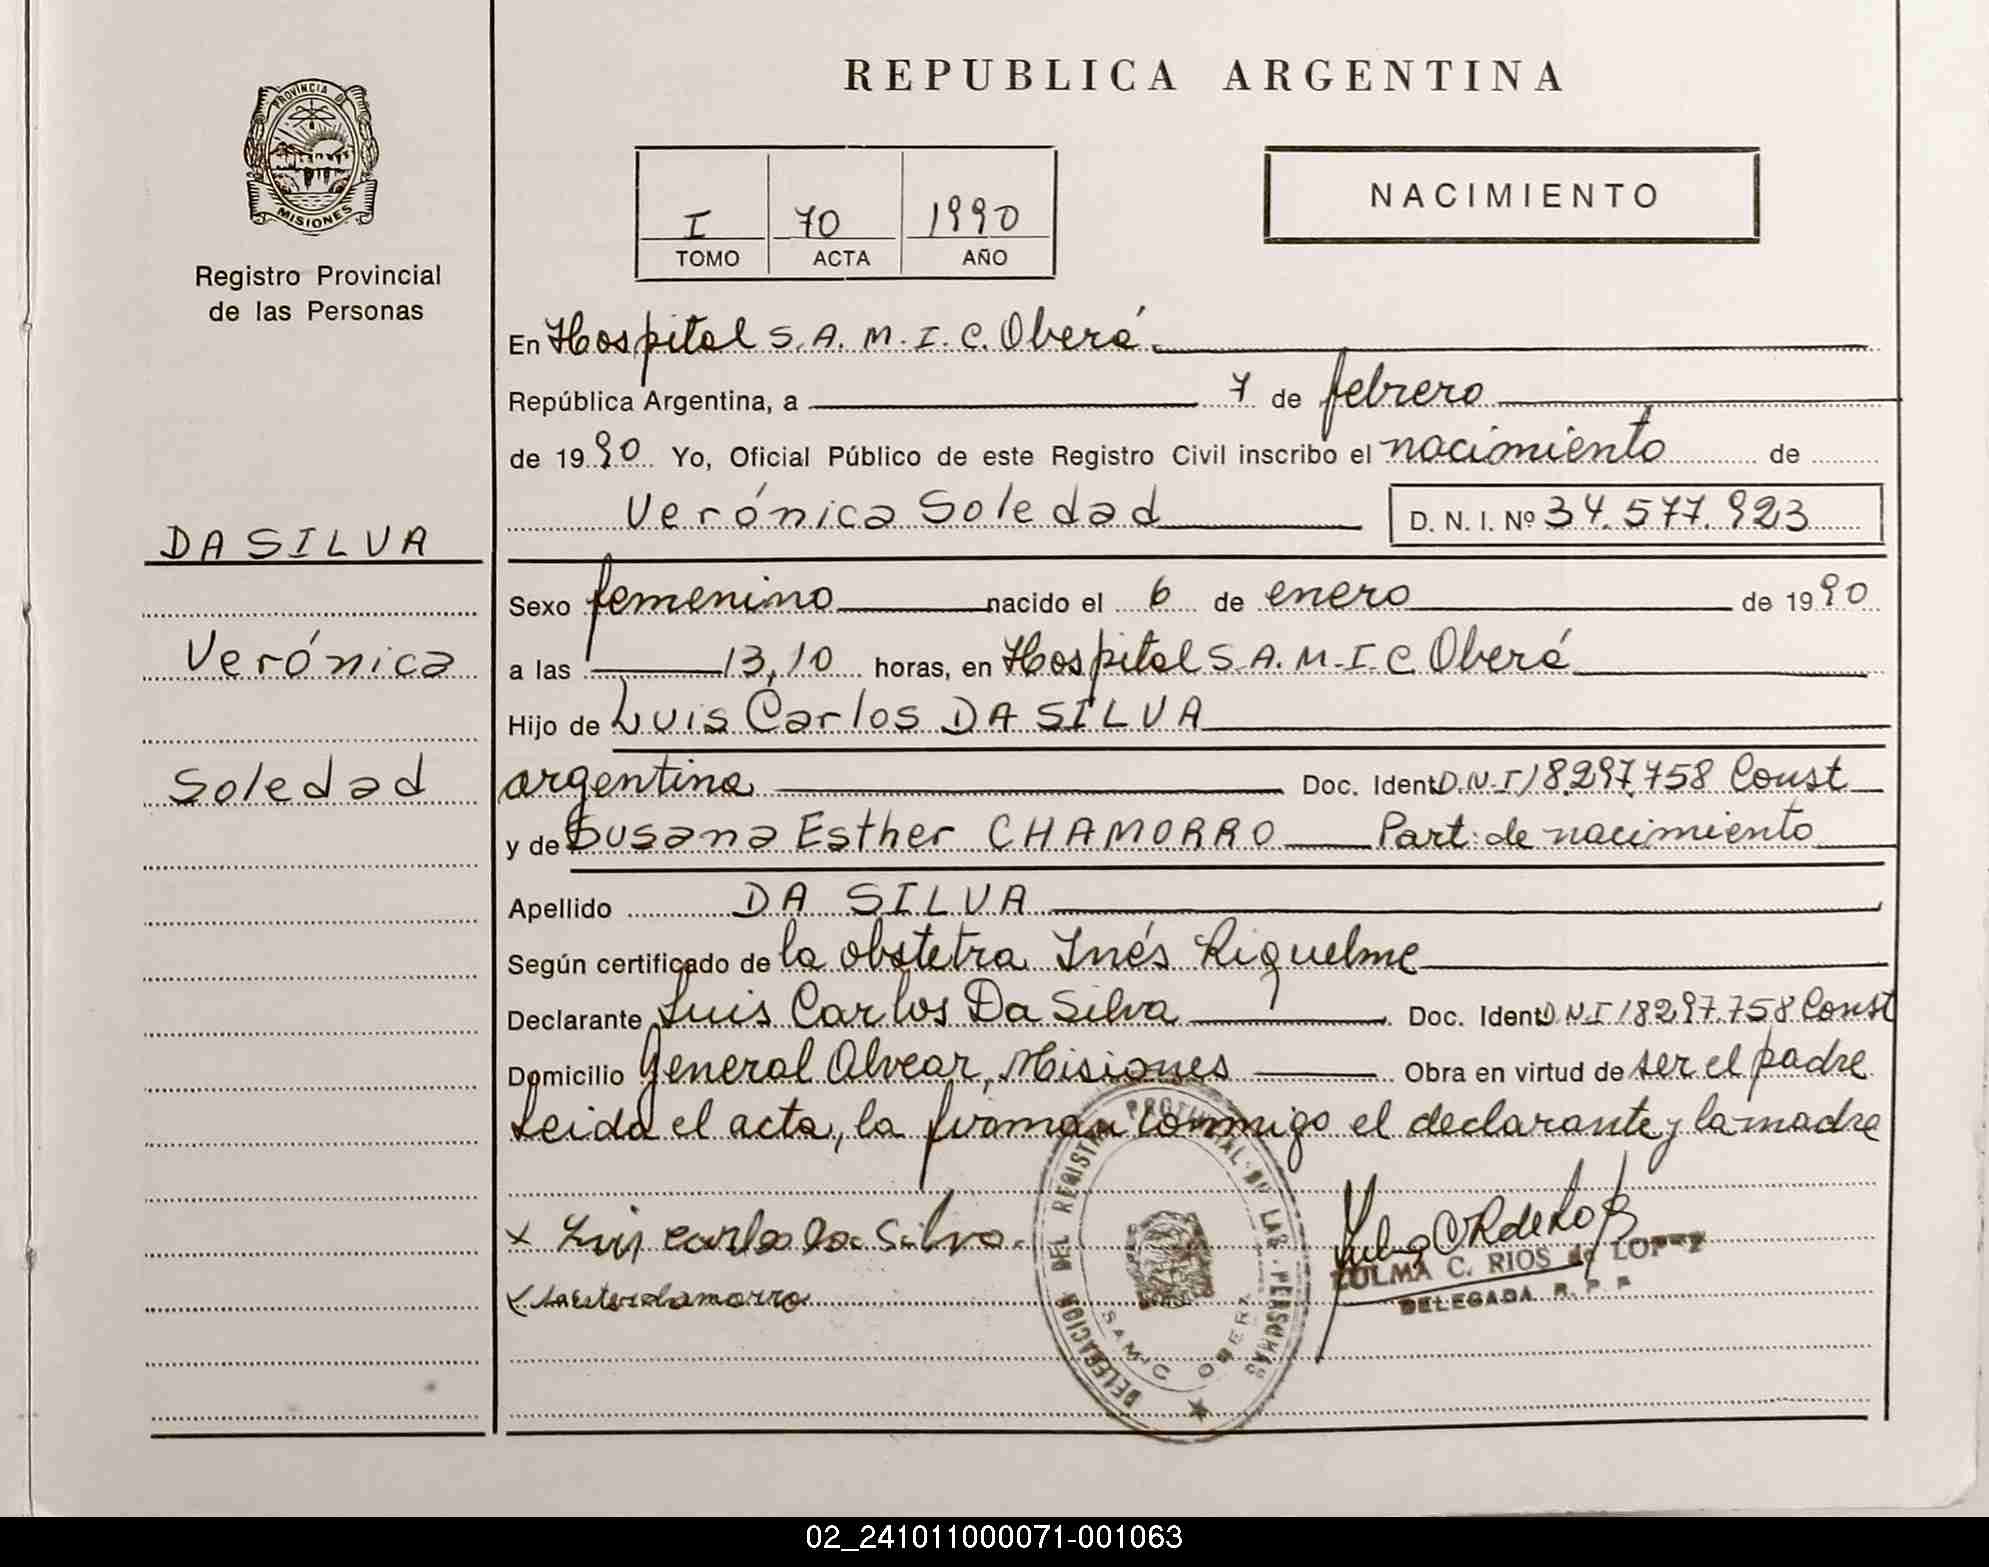 REPUBLICA ARGENTINA
PROVINCIA DE
MISIONES
Registro Provincial
de las Personas
I 70 1990
TOMO ACTA AÑO
NACIMIENTO
En Hospital S.A.M.I.C. Oberá
República Argentina, a 7 de febrero
de 1990 Yo, Oficial Público de este Registro Civil inscribo el nacimiento de
Verónica Soledad D. N. I. Nº 34.577.923
DA SILVA
Verónica
Soledad
Sexo femenino nacido el 6 de enero de 1990
a las 13,10 horas, en Hospital S.A.M.I.C Oberá
Hijo de Luis Carlos DA SILVA
argentina Doc. Ident D.N.I 18.297.758 Const
y de Susana Esther CHAMORRO Part. de nacimiento
Apellido DA SILVA
Según certificado de la obstetra Inés Riquelme
Declarante Luis Carlos Da Silva Doc. Ident D.N.I 18.297.758 Const
Domicilio General Alvear, Misiones Obra en virtud de ser el padre
Leida el acta, la firman conmigo el declarante y la madre
x Luis Carlos Da Silva
DELEGACION DEL REGISTRO PROVINCIAL DE LAS PERSONAS
SAMIC OBERA
ZULMA C. RIOS de LOPEZ
DELEGADA R. P. P.
02_241011000071-001063